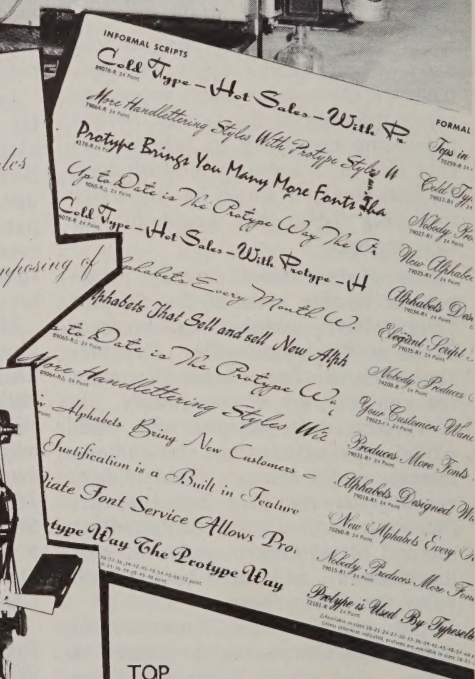 INFORMAL SCRIPTS
Cold Type – Hot Sales – With Pr
More Handlettering Styles With Protype Styles W
Protype Brings You Many More Fonts Tha
Up to Date is The Protype Way The Pr
Cold Type – Hot Sales – With Protype – H
lphabets Every Month W
lphabets That Sell and sell New Alph
p to Date is The Protype W
More Handlettering Styles Wit
Alphabets Bring New Customers
Justification is a Built in Feature
iate Font Service Allows Pro
otype Way The Protype Way
FORMAL
Tops in
Cold Typ
Nobody Pro
New Alphabe
Alphabets Desi
Elegant Script
Nobody Produces
Your Customers Want
Produces More Fonts
Alphabets Designed Wi
New Alphabets Every
Nobody Produces More Fon
Protype is Used By Typesett
yles
mposing of
TOP